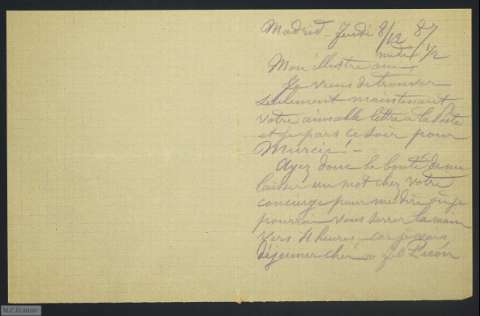 Madrid - Jeudi 8/12 87
midi 1/2
Mon illustre ami,
Je viens de trouver
seulement maintenant
votre aimable lettre à la Poste
et je pars ce soir pour
Murcie! -
Ayez donc la bonté de me
laisser un mot chez votre
concierge pour me dire où je
pourrai vous serrer la main
vers 4 heures - car je vais
déjeuner chez Picón